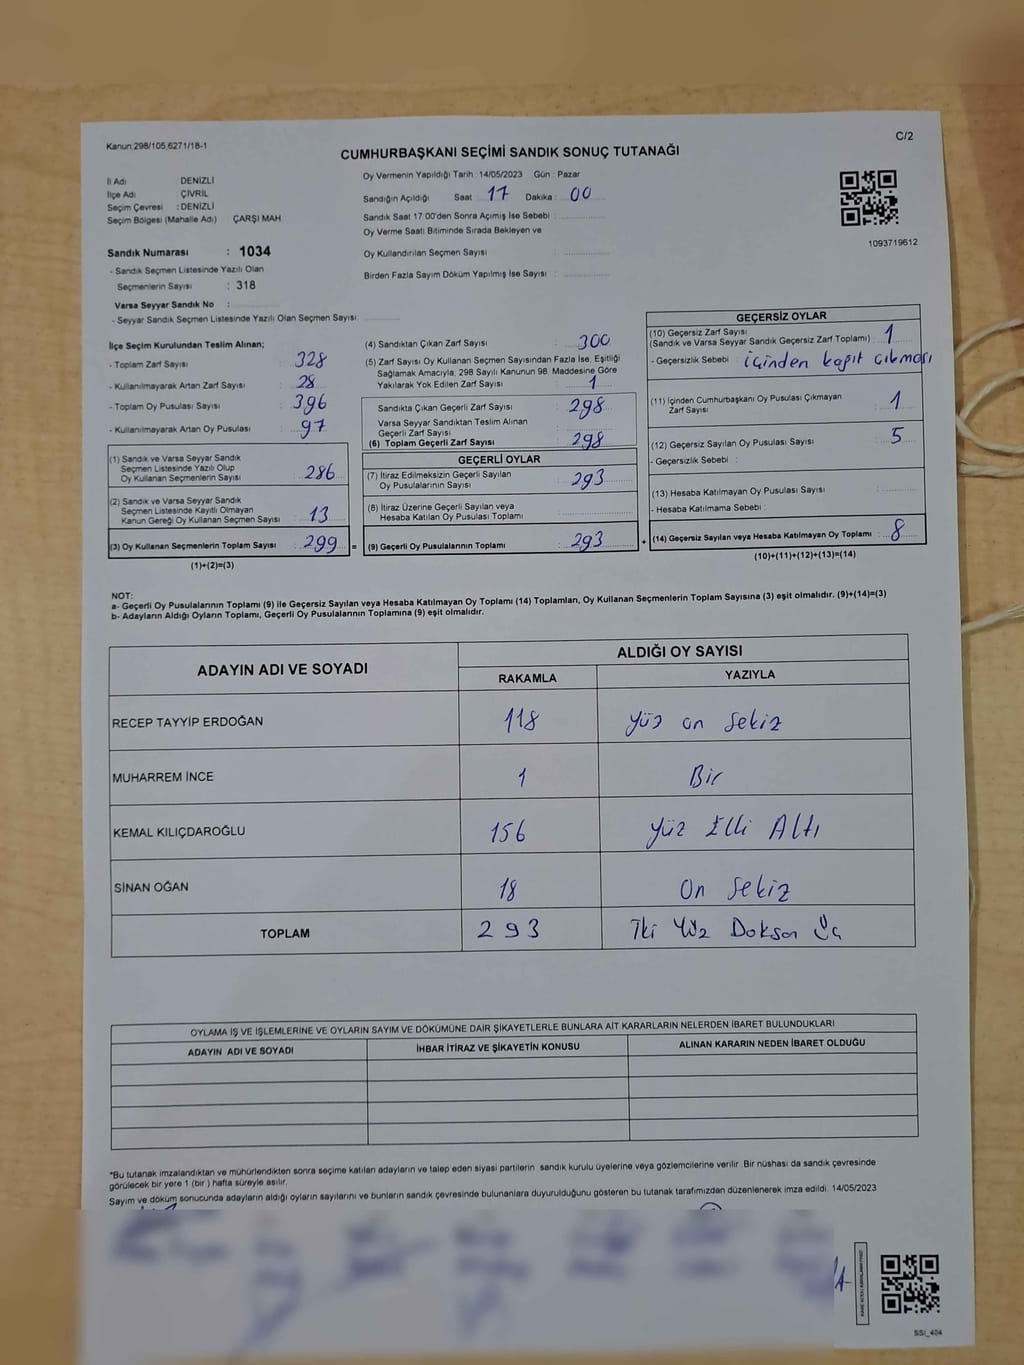 Kanun;298/105,6271/18-1
C/2
CUMHURBAŞKANI SEÇİMİ SANDIK SONUÇ TUTANAĞI
İl Adı : DENİZLİ
İlçe Adı : ÇİVRİL
Seçim Çevresi : DENİZLİ
Seçim Bölgesi (Mahalle Adı) ÇARŞI MAH
Sandık Numarası : 1034
- Sandık Seçmen Listesinde Yazılı Olan
Seçmenlerin Sayısı : 318
Varsa Seyyar Sandık No :
- Seyyar Sandık Seçmen Listesinde Yazılı Olan Seçmen Sayısı:
Oy Vermenin Yapıldığı Tarih : 14/05/2023 Gün : Pazar
Sandığın Açıldığı Saat : 17 Dakika : 00
Sandık Saat 17:00'den Sonra Açımış İse Sebebi :
Oy Verme Saati Bitiminde Sırada Bekleyen ve
Oy Kullandırılan Seçmen Sayısı :
Birden Fazla Sayım Döküm Yapılmış İse Sayısı :
1093719612
İlçe Seçim Kurulundan Teslim Alınan;
- Toplam Zarf Sayısı : 328
- Kullanılmayarak Artan Zarf Sayısı : 28
- Toplam Oy Pusulası Sayısı : 396
- Kullanılmayarak Artan Oy Pusulası : 97
(1) Sandık ve Varsa Seyyar Sandık
Seçmen Listesinde Yazılı Olup
Oy Kullanan Seçmenlerin Sayısı : 286
(2) Sandık ve Varsa Seyyar Sandık
Seçmen Listesinde Kayıtlı Olmayan
Kanun Gereği Oy Kullanan Seçmen Sayısı : 13
(3) Oy Kullanan Seçmenlerin Toplam Sayısı : 299 =
(1)+(2)=(3)
(4) Sandıktan Çıkan Zarf Sayısı : 300
(5) Zarf Sayısı Oy Kullanan Seçmen Sayısından Fazla İse, Eşitliği
Sağlamak Amacıyla, 298 Sayılı Kanunun 98. Maddesine Göre
Yakılarak Yok Edilen Zarf Sayısı : 1
Sandıkta Çıkan Geçerli Zarf Sayısı : 298
Varsa Seyyar Sandıktan Teslim Alınan
Geçerli Zarf Sayısı :
(6) Toplam Geçerli Zarf Sayısı : 298
GEÇERLİ OYLAR
(7) İtiraz Edilmeksizin Geçerli Sayılan
Oy Pusulalarının Sayısı : 293
(8) İtiraz Üzerine Geçerli Sayılan veya
Hesaba Katılan Oy Pusulası Toplamı :
(9) Geçerli Oy Pusulalarının Toplamı : 293 +
GEÇERSİZ OYLAR
(10) Geçersiz Zarf Sayısı
(Sandık ve Varsa Seyyar Sandık Geçersiz Zarf Toplamı) : 1
- Geçersizlik Sebebi : içinden kağıt çıkması
(11) İçinden Cumhurbaşkanı Oy Pusulası Çıkmayan
Zarf Sayısı : 1
(12) Geçersiz Sayılan Oy Pusulası Sayısı : 5
- Geçersizlik Sebebi :
(13) Hesaba Katılmayan Oy Pusulası Sayısı :
- Hesaba Katılmama Sebebi :
(14) Geçersiz Sayılan veya Hesaba Katılmayan Oy Toplamı : 8
(10)+(11)+(12)+(13)=(14)
NOT:
a- Geçerli Oy Pusulalarının Toplamı (9) ile Geçersiz Sayılan veya Hesaba Katılmayan Oy Toplamı (14) Toplamları, Oy Kullanan Seçmenlerin Toplam Sayısına (3) eşit olmalıdır. (9)+(14)=(3)
b- Adayların Aldığı Oyların Toplamı, Geçerli Oy Pusulalarının Toplamına (9) eşit olmalıdır.
ADAYIN ADI VE SOYADI ALDIĞI OY SAYISI
RAKAMLA YAZIYLA
RECEP TAYYİP ERDOĞAN 118 Yüz on Sekiz
MUHARREM İNCE 1 Bir
KEMAL KILIÇDAROĞLU 156 Yüz Elli Altı
SİNAN OĞAN 18 On Sekiz
TOPLAM 293 İki Yüz Doksan Üç
OYLAMA İŞ VE İŞLEMLERİNE VE OYLARIN SAYIM VE DÖKÜMÜNE DAİR ŞİKAYETLERLE BUNLARA AİT KARARLARIN NELERDEN İBARET BULUNDUKLARI
ADAYIN ADI VE SOYADI İHBAR İTİRAZ VE ŞİKAYETİN KONUSU ALINAN KARARIN NEDEN İBARET OLDUĞU
*Bu tutanak imzalandıktan ve mühürlendikten sonra seçime katılan adayların ve talep eden siyasi partilerin sandık kurulu üyelerine veya gözlemcilerine verilir. Bir nüshası da sandık çevresinde
görülecek bir yere 1 (bir ) hafta süreyle asılır.
Sayım ve döküm sonucunda adayların aldığı oyların sayılarını ve bunların sandık çevresinde bulunanlara duyurulduğunu gösteren bu tutanak tarafımızdan düzenlenerek imza edildi. 14/05/2023
SSI_404